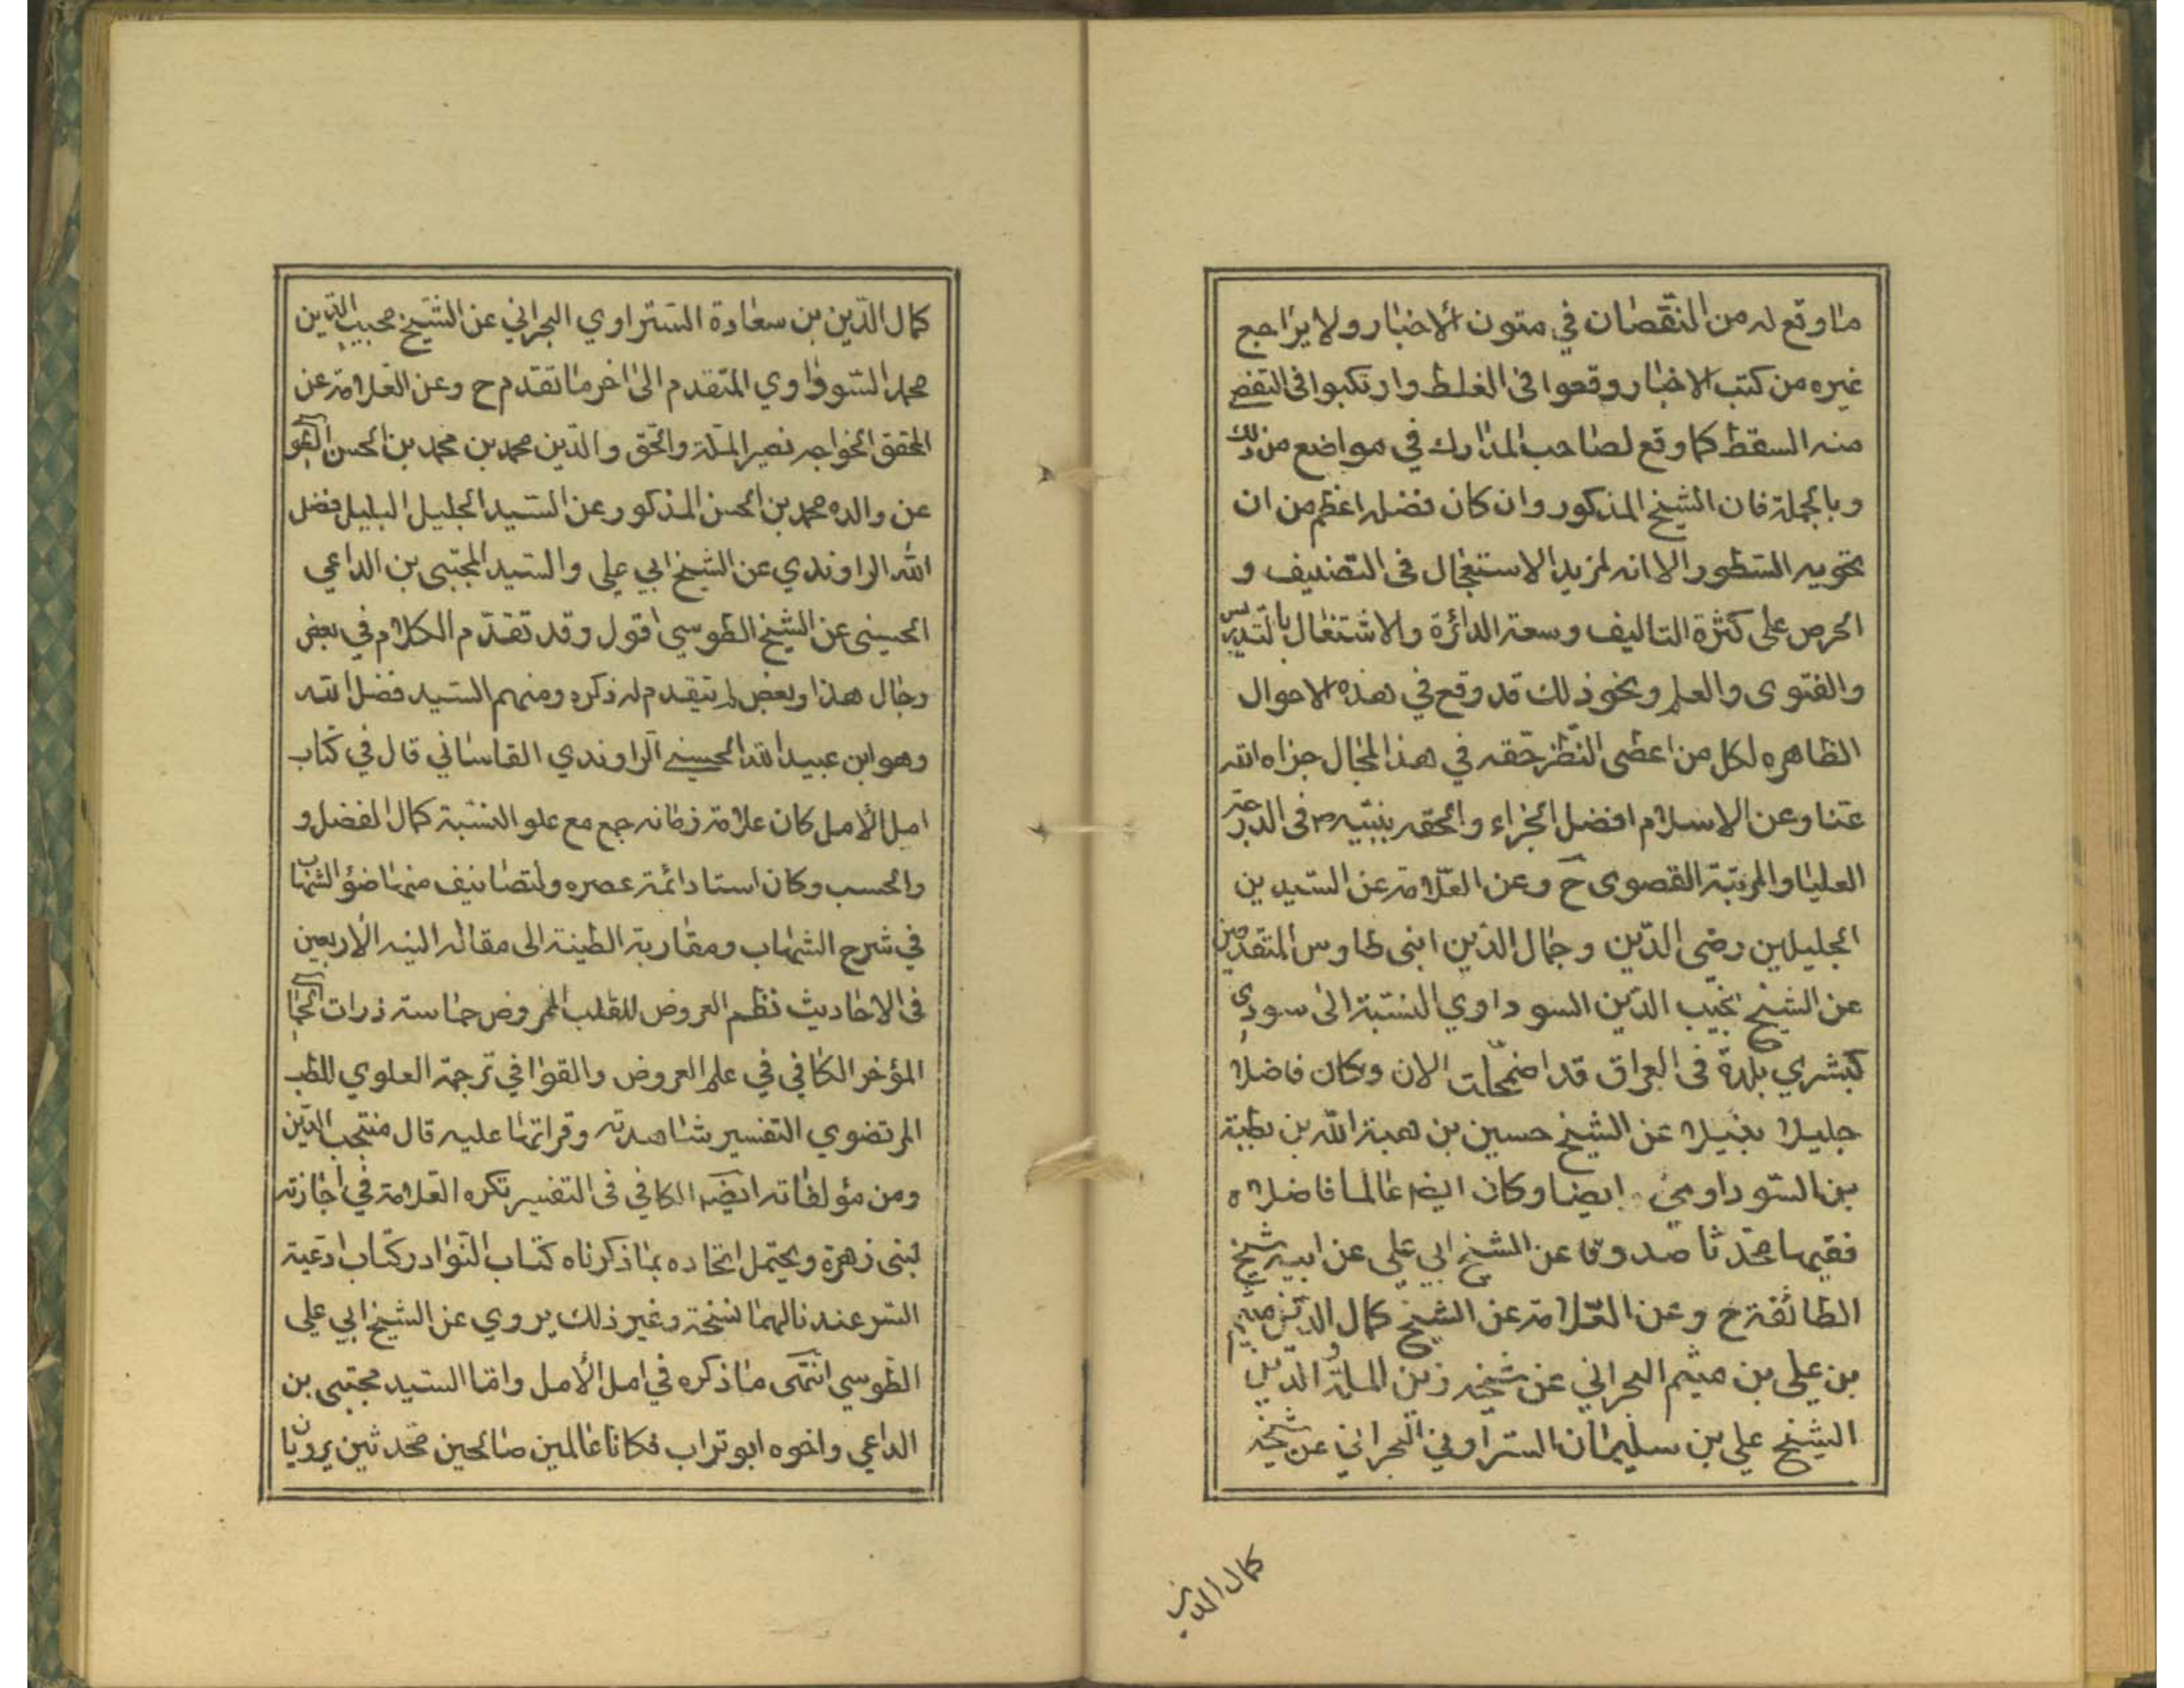 ما وقع له من النقصان في متون الاخبار ولا يراجع
غيره من كتب الاخبار وقعوا فى الغلط وارتكبوا فى التفصى
منه السقط كما وقع لصاحب المدارك في مواضع من ذلك
وبالجملة فان الشيخ المذكور وان كان فضله اعظم من ان
تحويه السطور الا انه لمزيد الاستعجال فى التصنيف و
الحرص على كثرة التاليف وسعة الدائرة والاشتغال بالتدريس
والفتوى والعلم ونحو ذلك قد وقع في هذه الاحوال
الظاهره لكل من اعطى النظر حقه في هذا المجال جزاه الله
عنا وعن الاسلام افضل الجزاء والحقه بنبيه ص فى الدرجة
العليا والمرتبة القصوى ح وعن العلامة عن السيدين
الجليلين رضى الدين وجمال الدين ابنى طاوس المتقدمين
عن الشيخ نجيب الدين السوداوي النسبة الى سودى
كبشري بلدة فى العراق قد اضمحلت الان وكان فاضلا
جليلا نبيلا عن الشيخ حسين بن هبة الله بن رطبة
بن السوداوي ايضا وكان ايضا عالما فاضلا
فقيها محدثا صدوقا عن الشيخ ابي علي عن ابيه شيخ
الطائفة ح وعن العلامة عن الشيخ كمال الدين ميثم
بن علي بن ميثم البحراني عن شيخه زين الملة والدين
الشيخ علي بن سليمان الستراوي البحراني عن شيخه
كمال الدين
كمال الدين بن سعادة الستراوي البحراني عن الشيخ مجيب الدين
محمد السوراوي المتقدم الى اخر ما تقدم ح وعن العلامة عن
المحقق الخواجه نصير الملة والحق والدين محمد بن محمد بن الحسن
عن والده محمد بن الحسن المذكور عن السيد الجليل البليل فضل
الله الراوندي عن الشيخ ابي على والسيد المجتبى بن الداعي
الحسينى عن الشيخ الطوسي اقول وقد تقدم الكلام في بعض
رجال هذا وبعض لم يتقدم له ذكره ومنهم السيد فضل الله
وهو ابن عبيد الله الحسيني الراوندي القاساني قال في كتاب
امل الأمل كان علامة زمانه جمع مع علو النسبة كمال الفضل و
والحسب وكان استاد ائمة عصره وله تصانيف منها ضؤ الشهاب
في شرح الشهاب ومقاربة الطينة الى مقالة النيه الاربعين
فى الاحاديث نظم العروض للقلب المفروض حماسة ذرات
المؤخر الكافي في علم العروض والقوافي ترجمة العلوي للطب
المرتضوي التفسير شاهدته وقراتها عليه قال منتجب الدين
ومن مؤلفاته ايضا الكافي فى التفسير تكره العلامة في اجازته
لبنى زهرة ويحتمل اتحاده بما ذكرناه كتاب النوادر كتاب ادعية
السر عندنا لهما نسخة وغير ذلك يروي عن الشيخ ابي علي
الطوسي انتهى ما ذكره في امل الأمل واما السيد مجتبى بن
الداعي واخوه ابو تراب فكانا عالمين صالحين محدثين يرويان